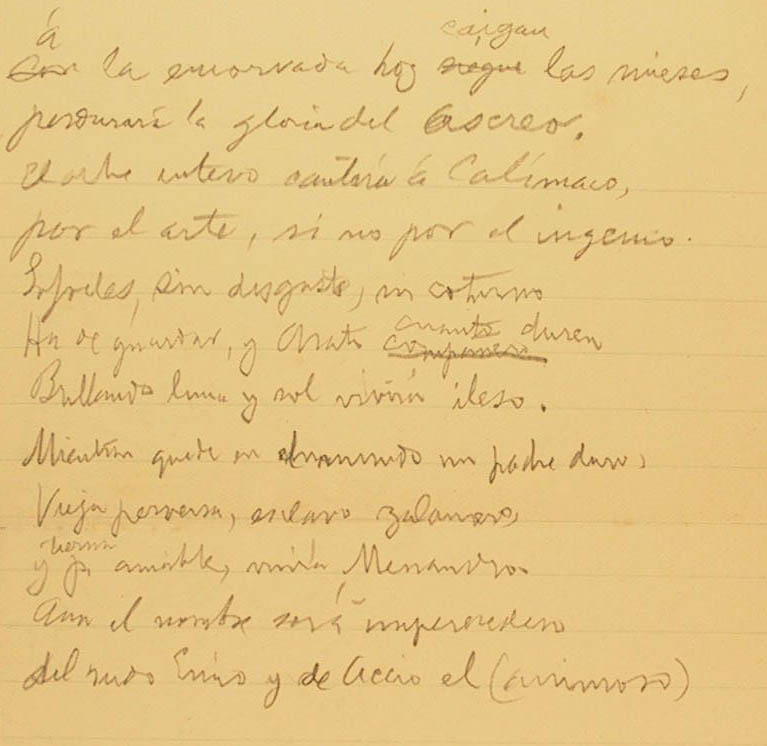 á caigan
Con la encorvada hoz siegue las mieses,
perdurará la gloria del Ascreo.
El orbe entero cantará á Calímaco,
por el arte, si no por el ingenio.
Sófocles, sin desgaste, su coturno
Ha de guardar, y Arato cuanto duren
Brillando luna y sol vivirá ileso.
Mientras quede en el mundo un padre duro,
Vieja perversa, esclavo zalamero,
y hembra amable, vivirá Menandro.
Aun el nombre será imperecedero
del rudo Enio y de Accio el (animoso)